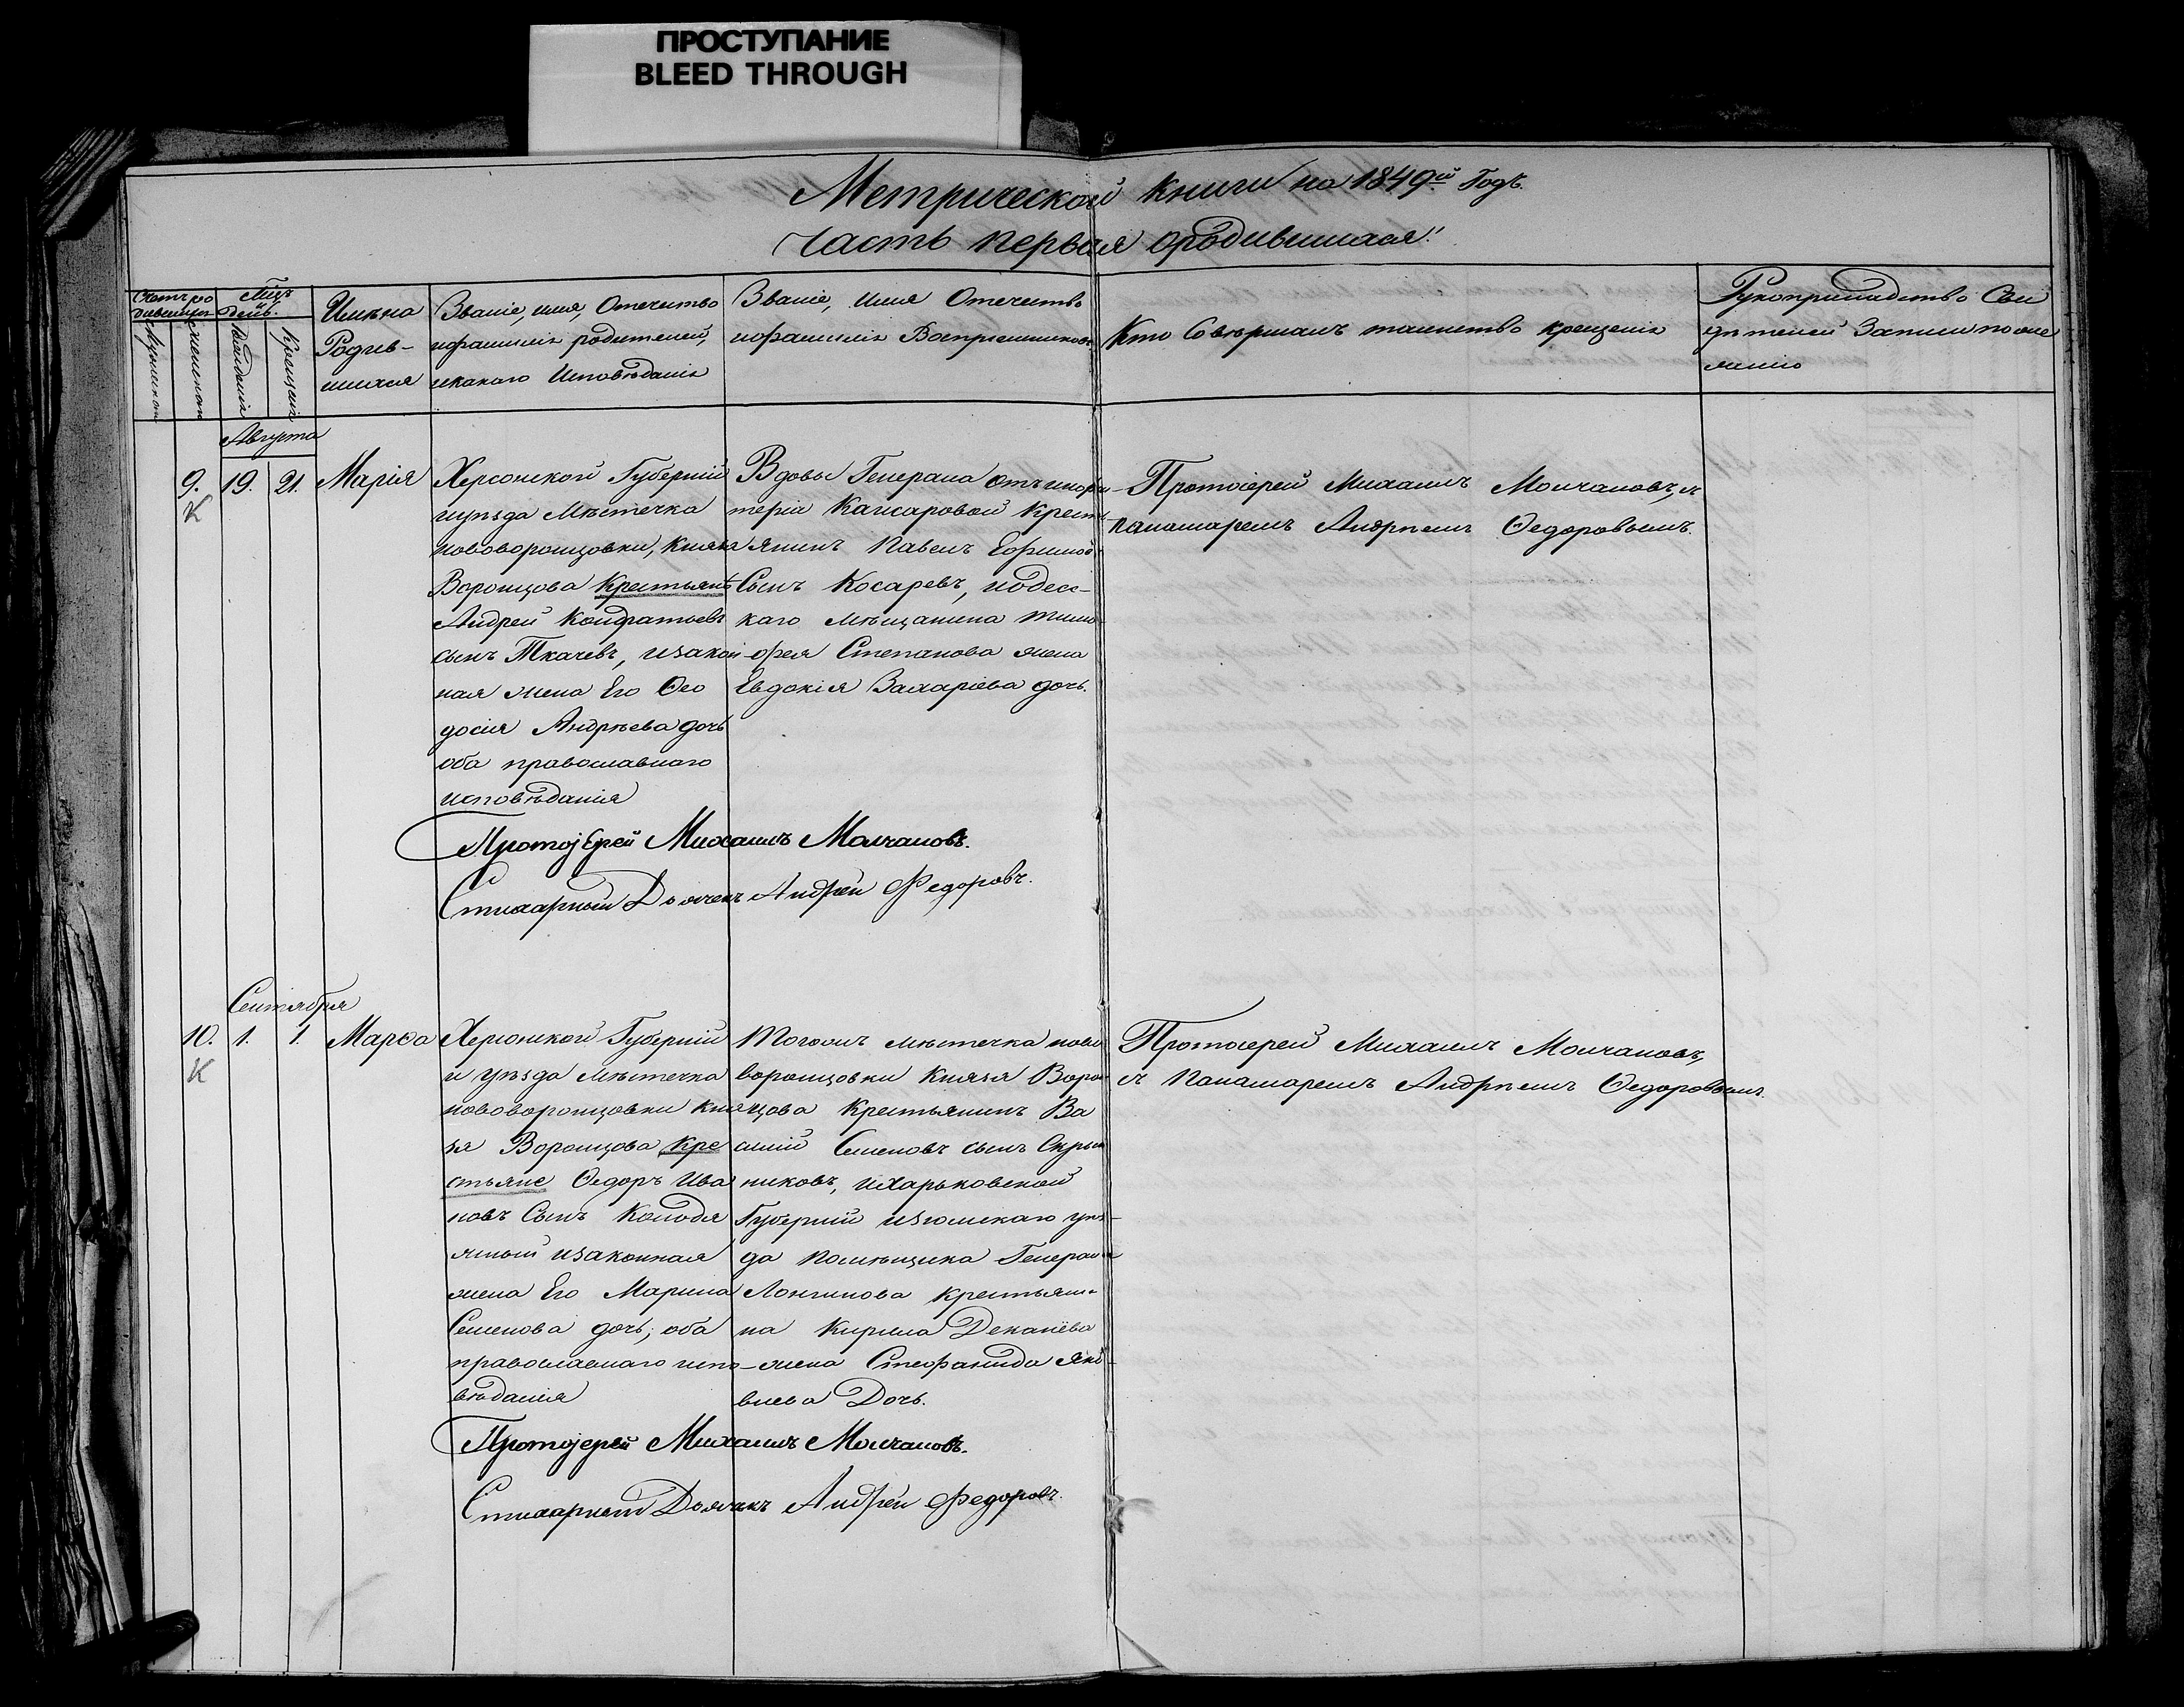 ПРОСТУПАНИЕ
BLEED THROUGH
Метрической книги на 1849й Годъ.
Часть первая ородившихся.
Счетъ ро
дившихся
Мцъ
и
день.
Мужеска
женска
Рожденія
Крещенія
Имена
Родив-
шихся
Званіе, имя, Отечество
ифамилія родителей,
икакого Исповѣданія
Званіе, имя Отечество
ифамилія Воспріемниковъ
Кто Совершалъ таинство крещенія
Рукоприкладство Сви
дѣтелей Записи по же
ланію
Августа
9.
К
19.
21.
Марія
Херсонской Губерніи
иуѣзда Мѣстечка
нововоронцовки, Князя
Воронцова Крестьянъ
Андрей Кондратьевъ
сынъ Ткачевъ, изакон
ная жена Его Ѳео
досія Андрѣева дочь
оба православнаго
исповѣданія
Вдовы Генерала отъ инфан-
теріи крест-
янинъ Павелъ Ефимовъ
Сынъ Косаревъ, иодесс-
каго мѣщанина тимо
-фея Степанова жена
Евдокія Захаріева дочь.
Протоіерей Михаилъ Молчановъ, съ
панамаремъ Андрѣемъ Ѳедоровымъ.
Протоjерей Михаилъ Молчановъ.
Стихарный Дьячекъ Андрей Федоровъ.
Сентября
10.
К
1.
1.
Марѳа
Херсонской Губерніи
и уѣзда мѣстечка
нововоронцовки Кня
зя Воронцова Кре
стьяне Ѳедоръ Ива
новъ Сынъ Колодя
жный изаконная
жена Его Марина
Семенова дочь; оба
православнаго испо-
вѣданія
Тогожъ мѣстечка ново
воронцовки Князя Ворон
цова Крестьянинъ Ва
силій Семеновъ сынъ Скрып
никовъ, иХарьковской
Губерніи изюмскаго уѣз-
да помѣщика Генерала
Лонгинова крестьяни
на Кирила Деканёва
жена Стефанида Яко-
влева Дочь.
Протоіерей Михаилъ Молчановъ,
съ Панамаремъ Андрѣемъ Ѳедоровымъ.
Протоjерей Михаилъ Молчановъ.
Стихарный Дьячекъ Андрей Федоровъ.